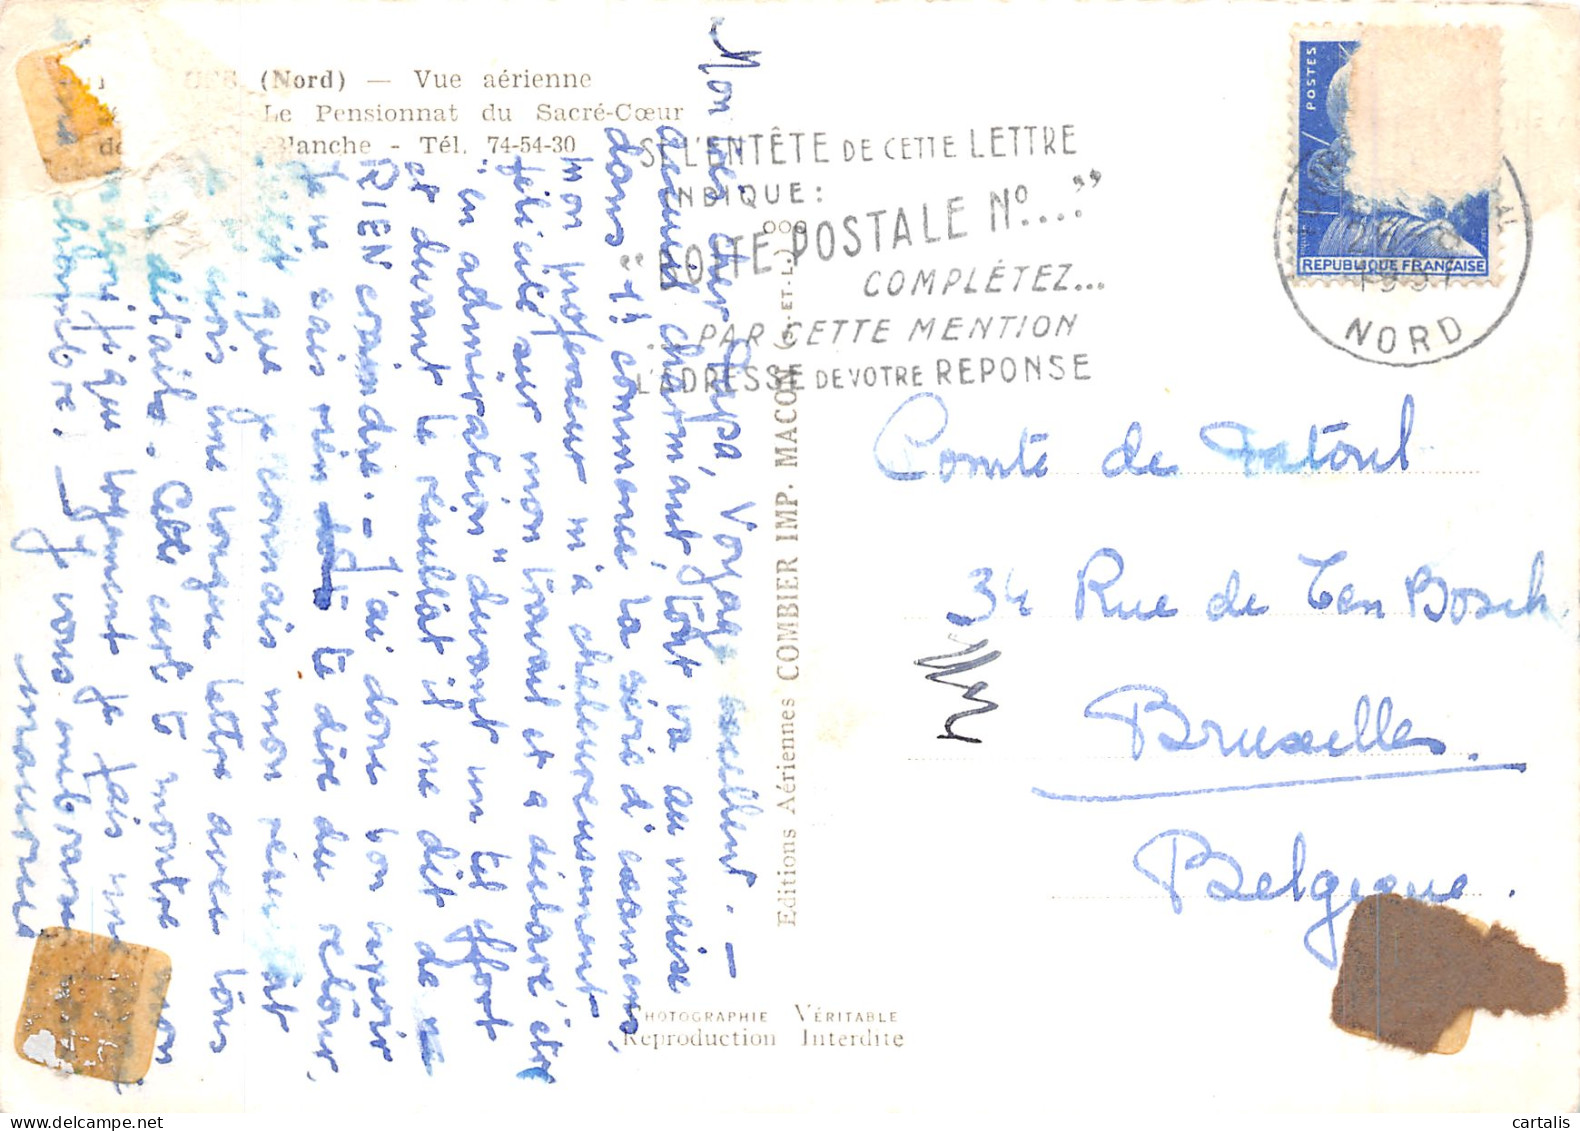 (Nord) — Vue aérienne
Le Pensionnat du Sacré-Cœur
Blanche - Tél. 74-54-30
SI L'ENTÊTE DE CETTE LETTRE
INDIQUE:
"BOITE POSTALE Nº...."
COMPLÉTEZ...
... PAR CETTE MENTION
L'ADRESSE DE VOTRE REPONSE
POSTES
REPUBLIQUE FRANÇAISE
1957
NORD
Mon cher Papa, Voyage excellent. —
accueil charmant, tout va au mieux
dans 1h commence la série d'examens,
mon professeur m'a chaleureusement
félicité sur mon travail et a déclaré être
"en admiration" devant un tel effort
et devant le résultat il me dit de ne
RIEN craindre. — J'ai donc bon espoir
Je ne sais rien te dire du retour,
que je connais mon résultat
une longue lettre avec tous
détails. Cette carte te montre mon
magnifique logement je fais une
chambre. — Je vous embrasse
Editions Aériennes COMBIER IMP. MACON (S.-ET-L.) 000
PHOTOGRAPHIE VÉRITABLE
Reproduction Interdite
Comte de
34 Rue de Ten Bosch
Bruxelles.
Belgique.
cartalis